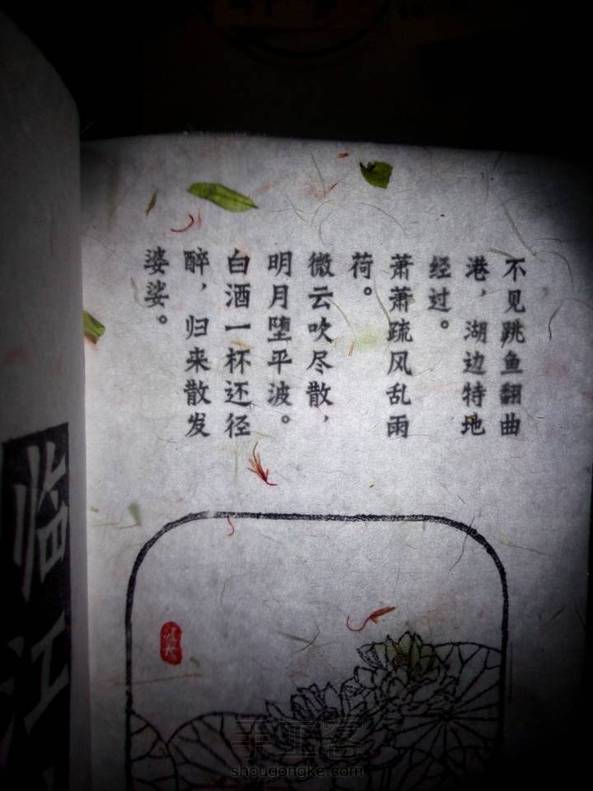 不见跳鱼翻曲
港，湖边特地
经过。
萧萧疏风乱雨
荷。
微云吹尽散，
明月堕平波。
白酒一杯还径
醉，归来散发
婆娑。
临江
手工客
shougongke.com